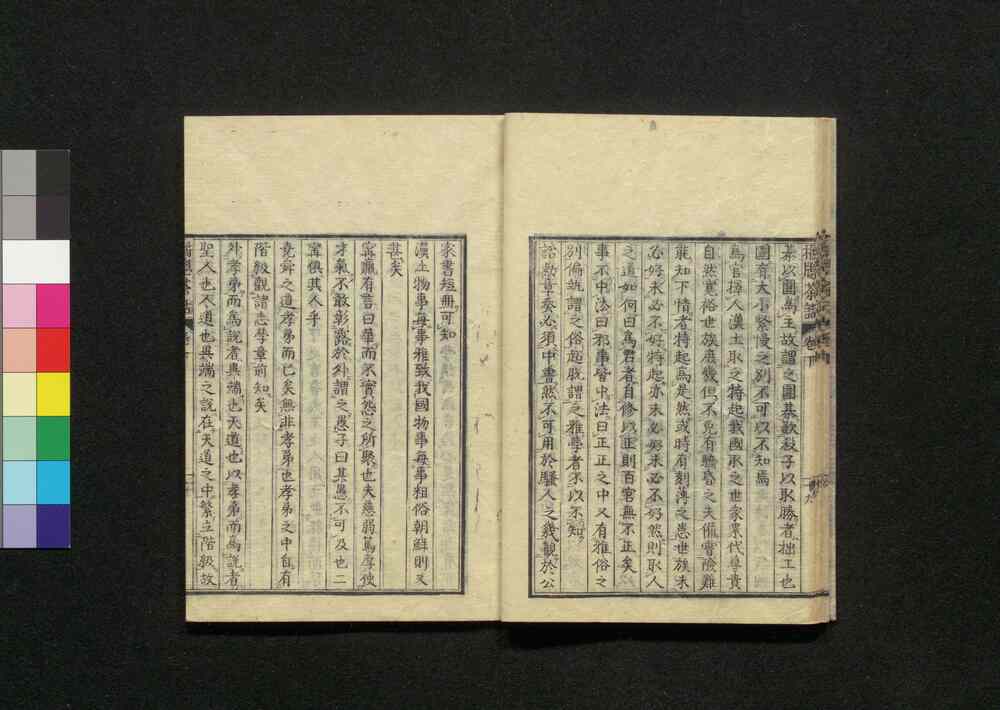 棊以圍爲主故謂之圍棊歡殺子以取勝者拙工也
圍有大小繁慢之別不可以不知焉
爲官擇人漢土取之特起我國取之世家累代尊貴
自然寬裕世族庶幾但不免有驕昏之夫備嘗險難
能知下情者特起爲是然或時有刻薄之患世族未
必好未必不好特起亦未必好未必不好然則取人
之道如何曰爲君者自修以正則百官無不正矣
事不中法曰邪事皆中法曰正正之中又有雅俗之
別偏就謂之俗超脫謂之雅學者不以不知
誥勅章奏必須中書然不可用於騷人之幾觀於公
家書短冊可知
漢土物事每事雅致我國物事每事粗俗朝鮮則又
甚矣
甯嬴有言曰華而不實怨之所聚也夫慈弱篤厚使
才氣不敢彰露於外謂之愚子曰其愚不可及也二
甯俱其人乎
堯舜之道孝弟而已矣無非孝弟也孝弟之中自有
階級觀諸志學章前知矣
外孝弟而爲說者異端也天道也以孝弟而爲說者
聖人也人道也異端之說在天道之中繁立階級故